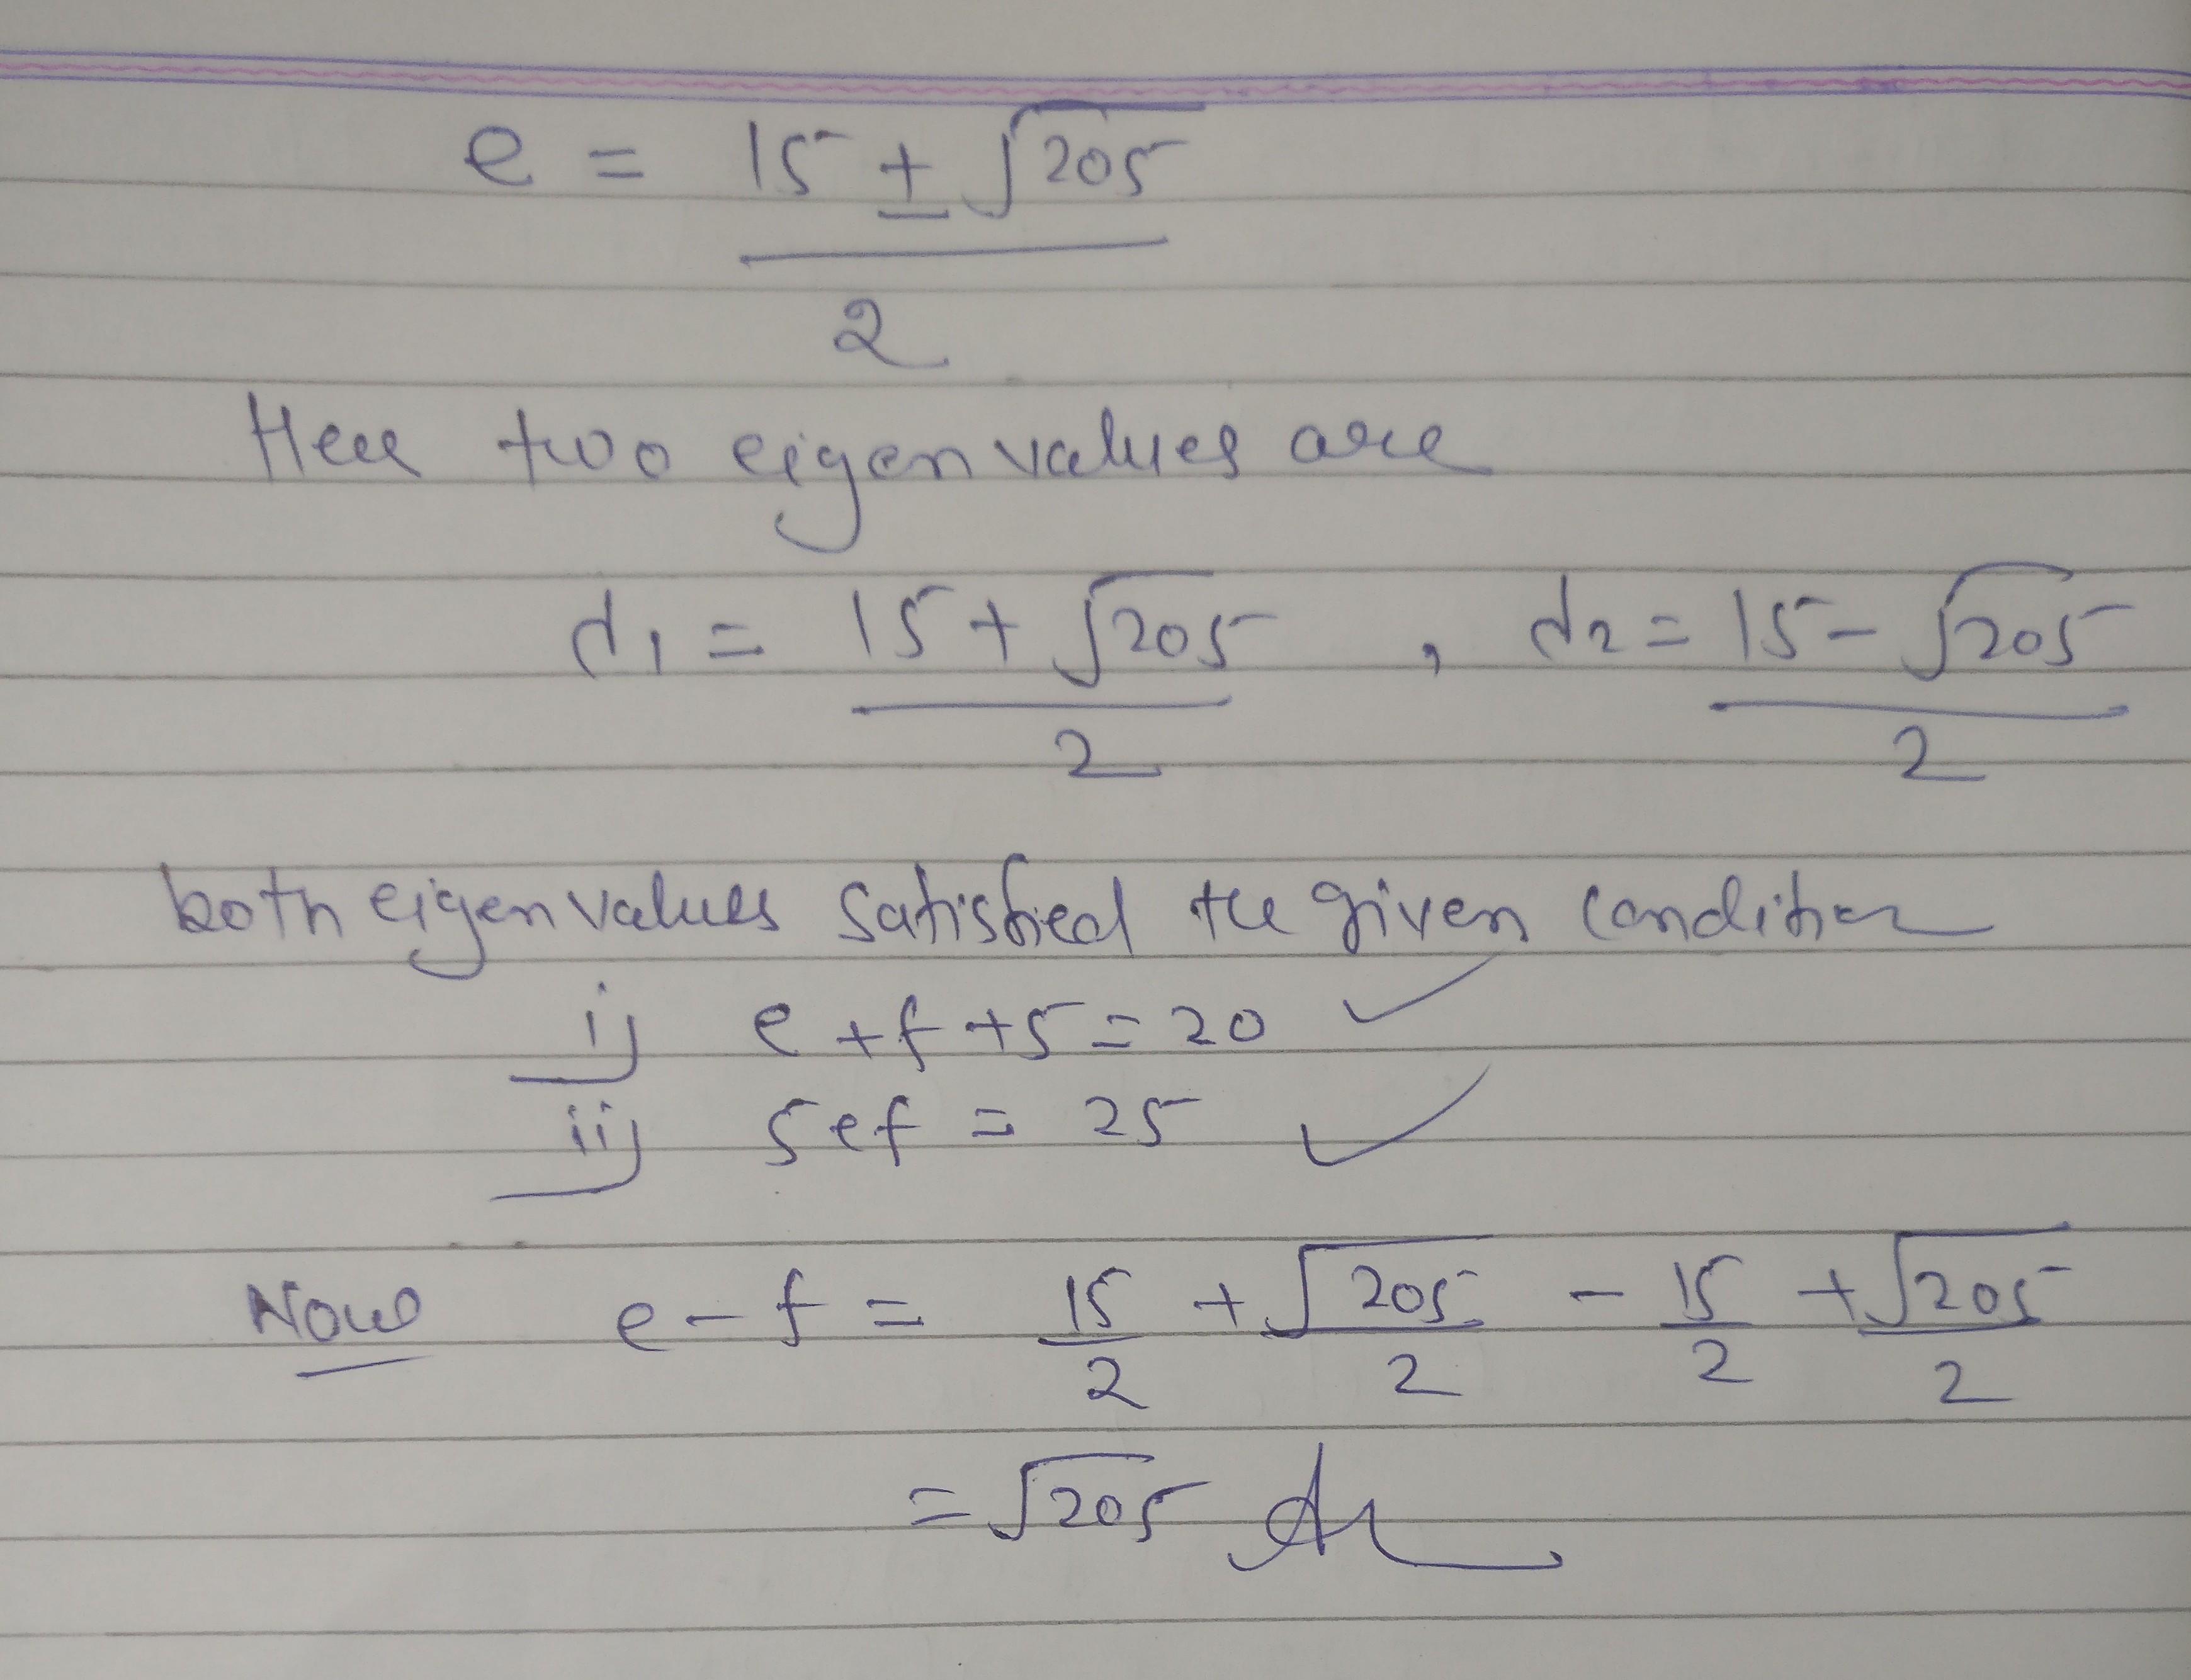 e = 15 ± √205
2
Here two eigen values are
d1 = 15 + √205 , d2 = 15 - √205
2 2
both eigen values satisfied the given condition
i) e + f + 5 = 20 ✓
ii) 5ef = 25 ✓
Now e - f = 15/2 + √205/2 - 15/2 + √205/2
= √205 Ar